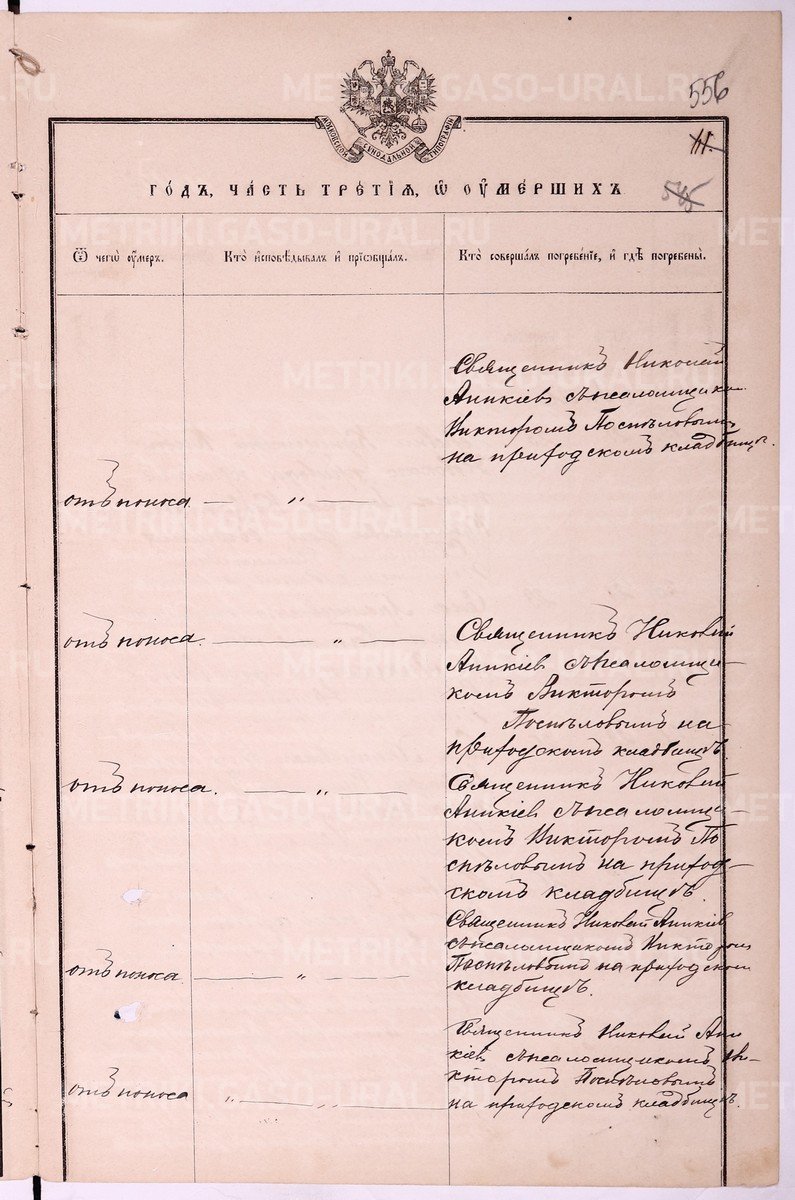 556
МОСКОВСКОЙ СѴНОДАЛЬНОЙ ТИПОГРАФІИ
ГО́ДЪ, ЧА́СТЬ ТРЕ́ТІЯ, Ѿ ОУ҆МЕ́РШИХЪ
545
Ѿ чегѡ̀ ᲂу҆́меръ.
Кто̀ и҆сповѣ́дывалъ и҆ прїѡбща́лъ.
Кто̀ соверша́лъ погребе́нїе, и҆ гдѣ̀ погребены̀.
Священникъ Николай
Аникіев съ псаломщико
Викторомъ Поспѣловымъ
на приходскомъ кладбищѣ.
отъ поноса — „ —
отъ поноса. — „ —
Священникъ Николай
Аникіев съ псаломщи-
комъ Викторомъ
Поспѣловымъ на
приходскомъ кладбищѣ.
отъ поноса. — „ —
Священникъ Николай
Аникіев съ псаломщи-
комъ Викторомъ По
спѣловымъ на приход-
скомъ кладбищѣ.
Священникъ Николай Аникіев
съ псаломщикомъ Викторомъ
Поспѣловымъ на приходском
кладбищѣ.
отъ поноса — „ —
Священникъ Николай Ани
кіев съ псаломщикомъ Ви-
кторомъ Поспѣловымъ
на приходскомъ кладбищѣ.
отъ поноса „ — „ —
METRIKI.GASO-URAL.RU